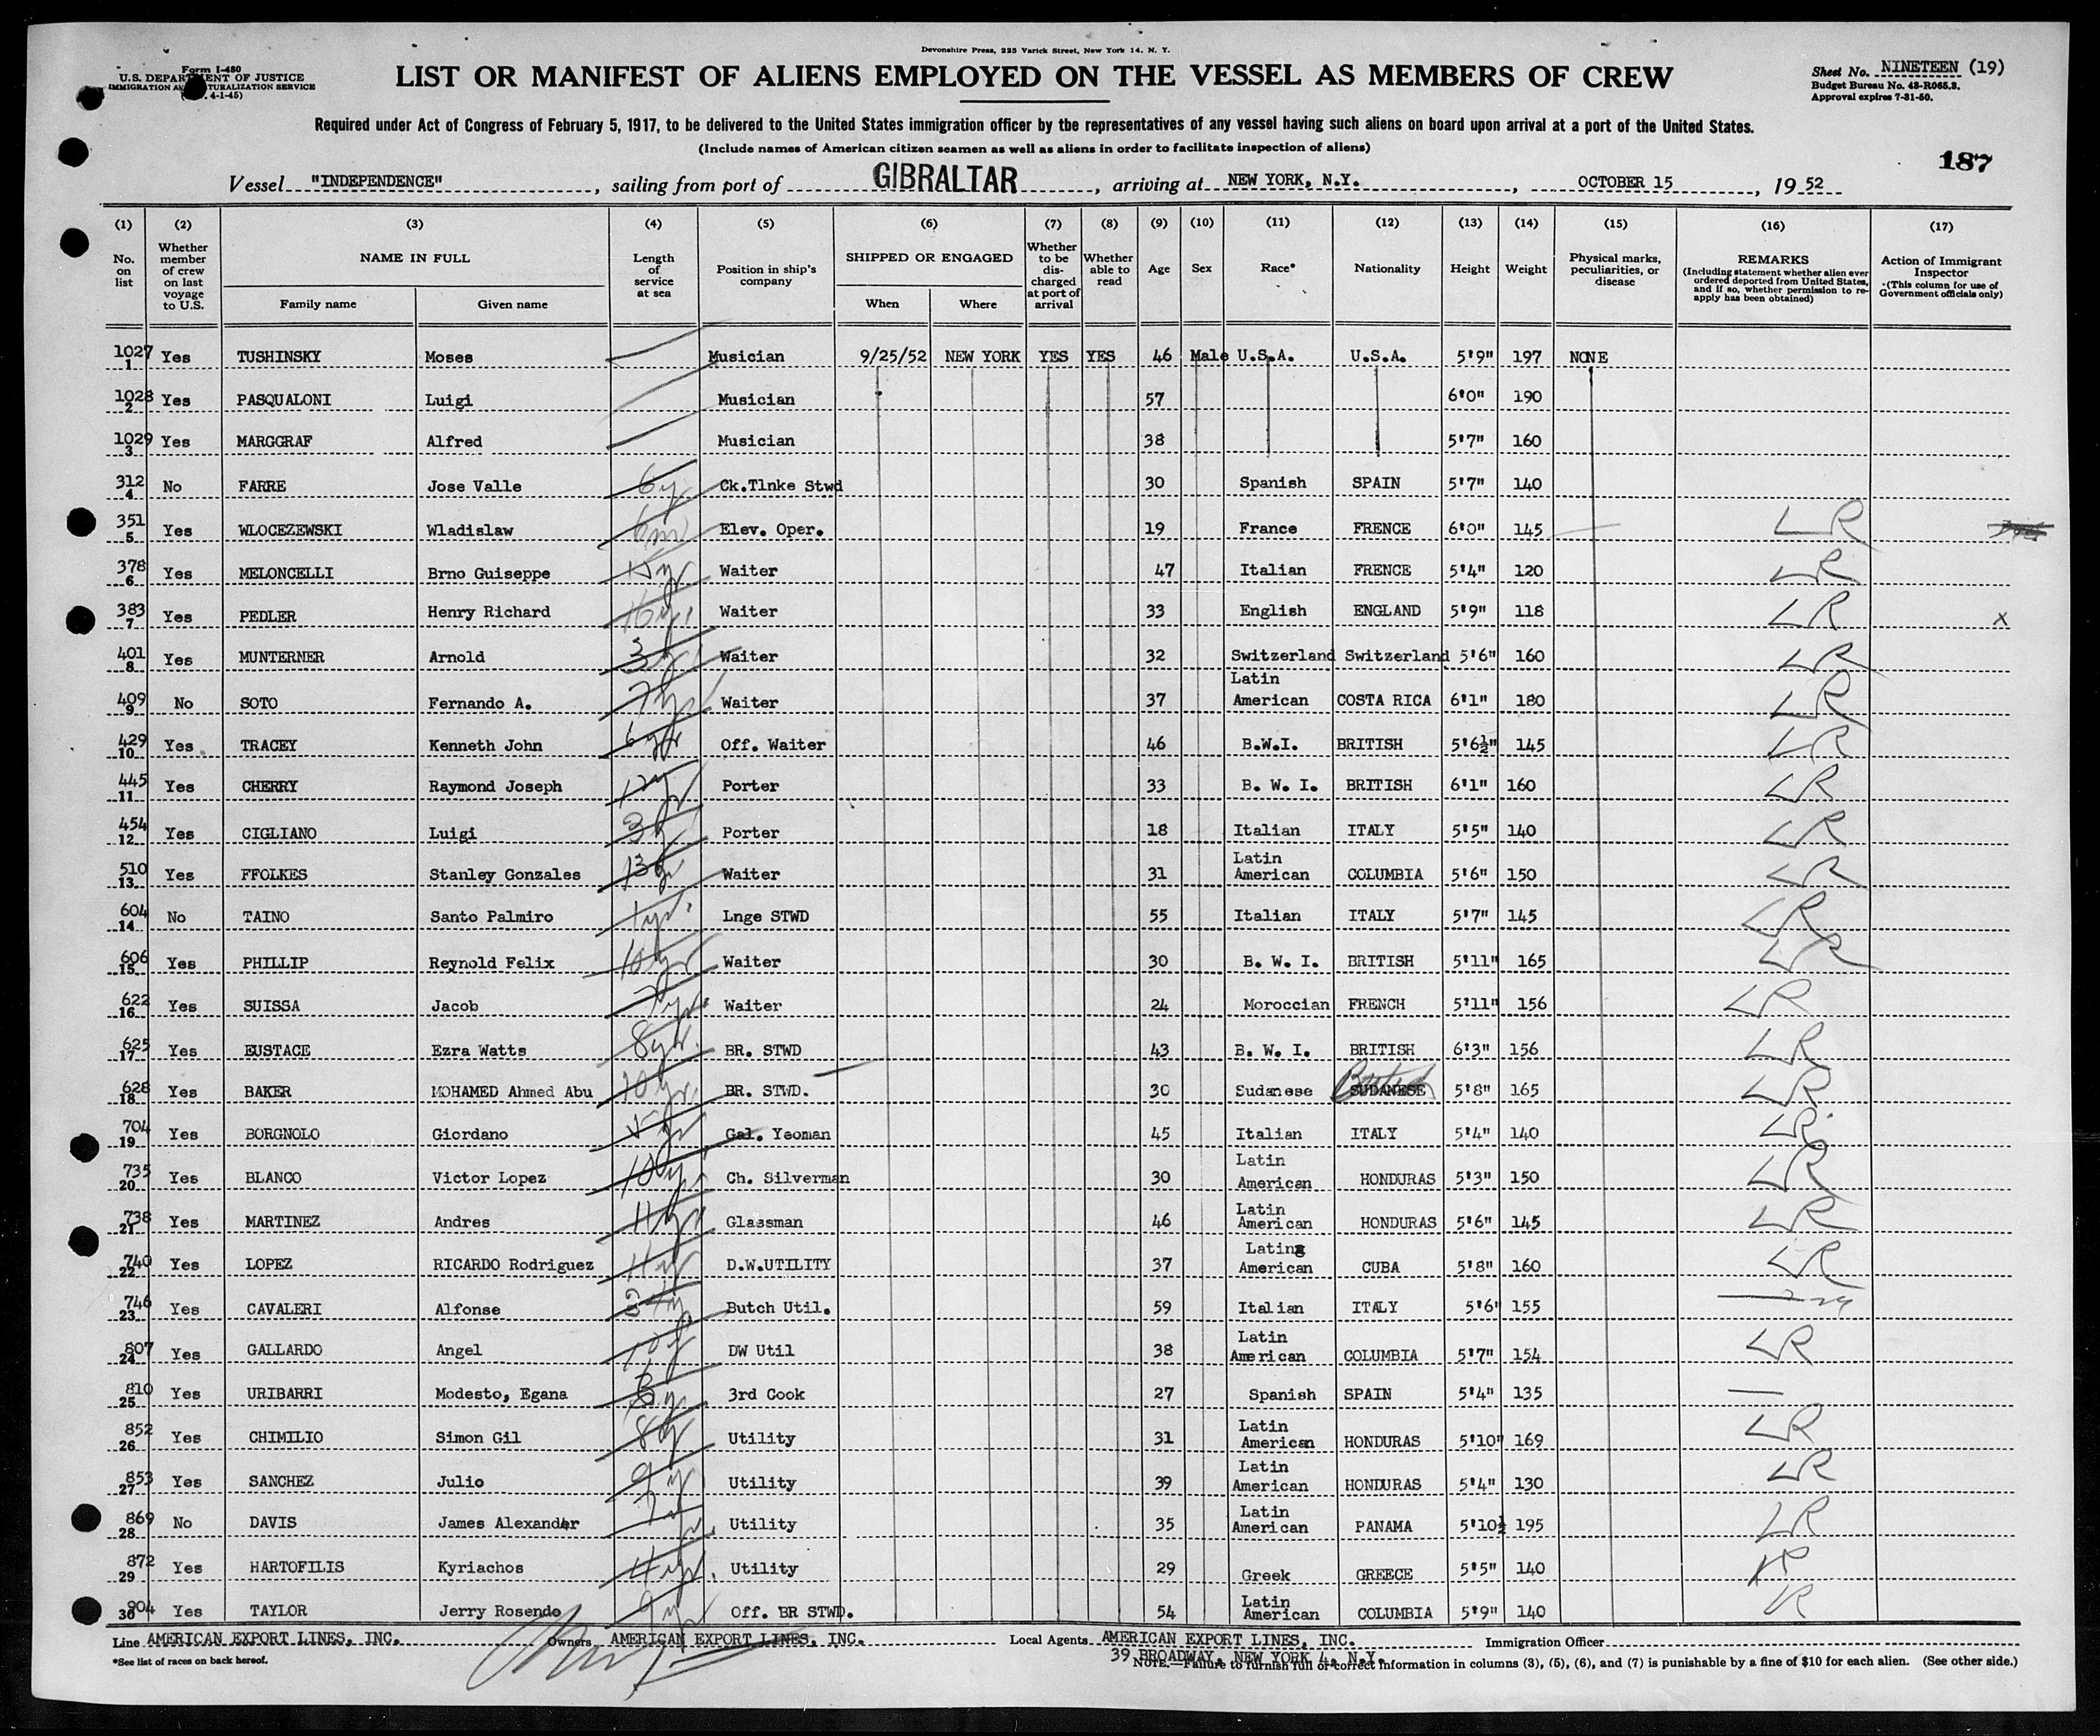 Devonshire Press, 225 Varick Street, New York 14, N. Y.
Form I-480
U.S. DEPARTMENT OF JUSTICE
IMMIGRATION AND NATURALIZATION SERVICE
4-1-45)
LIST OR MANIFEST OF ALIENS EMPLOYED ON THE VESSEL AS MEMBERS OF CREW
Sheet No. NINETEEN (19)
Budget Bureau No. 43-R065.3.
Approval expires 7-31-50.
Required under Act of Congress of February 5, 1917, to be delivered to the United States immigration officer by the representatives of any vessel having such aliens on board upon arrival at a port of the United States.
(Include names of American citizen seamen as well as aliens in order to facilitate inspection of aliens)
187
Vessel "INDEPENDENCE", sailing from port of GIBRALTAR, arriving at NEW YORK, N.Y., OCTOBER 15, 19 52
(1) (2) (3) (4) (5) (6) (7) (8) (9) (10) (11) (12) (13) (14) (15) (16) (17)
No. on list Whether member of crew on last voyage to U.S. NAME IN FULL Family name Given name Length of service at sea Position in ship's company SHIPPED OR ENGAGED When Where Whether to be discharged at port of arrival Whether able to read Age Sex Race* Nationality Height Weight Physical marks, peculiarities, or disease REMARKS (Including statement whether alien ever ordered deported from United States, and if so, whether permission to re-apply has been obtained) Action of Immigrant Inspector (This column for use of Government officials only)
1027 1 Yes TUSHINSKY Moses Musician 9/25/52 NEW YORK YES YES 46 Male U.S.A. U.S.A. 5'9" 197 NONE
1028 2 Yes PASQUALONI Luigi Musician 57 6'0" 190
1029 3 Yes MARGGRAF Alfred Musician 38 5'7" 160
312 4 No FARRE Jose Valle 6y Ck.Tlnke Stwd 30 Spanish SPAIN 5'7" 140
351 5 Yes WLOCEZEWSKI Wladislaw 6m Elev. Oper. 19 France FRENCE 6'0" 145 LR
378 6 Yes MELONCELLI Brno Guiseppe Waiter 47 Italian FRENCE 5'4" 120 LR
383 7 Yes PEDLER Henry Richard 16y Waiter 33 English ENGLAND 5'9" 118 LR X
401 8 Yes MUNTERNER Arnold 3y Waiter 32 Switzerland Switzerland 5'6" 160 LR
409 9 No SOTO Fernando A. 7y Waiter 37 Latin American COSTA RICA 6'1" 180 LR
429 10 Yes TRACEY Kenneth John 6yr Off. Waiter 46 B.W.I. BRITISH 5'6½" 145 LR
445 11 Yes CHERRY Raymond Joseph 12y Porter 33 B. W. I. BRITISH 6'1" 160 LR
454 12 Yes CIGLIANO Luigi 3y Porter 18 Italian ITALY 5'5" 140 LR
510 13 Yes FFOLKES Stanley Gonzales 13y Waiter 31 Latin American COLUMBIA 5'6" 150 LR
604 14 No TAINO Santo Palmiro 1yr. Lnge STWD 55 Italian ITALY 5'7" 145 LR
606 15 Yes PHILLIP Reynold Felix 10yr Waiter 30 B. W. I. BRITISH 5'11" 165 LR
622 16 Yes SUISSA Jacob 7yr Waiter 24 Moroccian FRENCH 5'11" 156 LR
625 17 Yes EUSTACE Ezra Watts 8yr. BR. STWD 43 B. W. I. BRITISH 6'3" 156 LR
628 18 Yes BAKER MOHAMED Ahmed Abu 10yr. BR. STWD. 30 Sudanese SUDANESE British 5'8" 165 LR
704 19 Yes BORGNOLO Giordano Gal. Yeoman 45 Italian ITALY 5'4" 140 LR
735 20 Yes BLANCO Victor Lopez 10y Ch. Silverman 30 Latin American HONDURAS 5'3" 150 LR
738 21 Yes MARTINEZ Andres 11y Glassman 46 Latin American HONDURAS 5'6" 145 LR
740 22 Yes LOPEZ RICARDO Rodriguez 11y D.W.UTILITY 37 Latin American CUBA 5'8" 160 LR
746 23 Yes CAVALERI Alfonse Butch Util. 59 Italian ITALY 5'6" 155
807 24 Yes GALLARDO Angel 10y DW Util 38 Latin American COLUMBIA 5'7" 154 LR
810 25 Yes URIBARRI Modesto, Egana 3rd Cook 27 Spanish SPAIN 5'4" 135
852 26 Yes CHIMILIO Simon Gil 8y Utility 31 Latin American HONDURAS 5'10" 169 LR
853 27 Yes SANCHEZ Julio 9y Utility 39 Latin American HONDURAS 5'4" 130 LR
869 28 No DAVIS James Alexander Utility 35 Latin American PANAMA 5'10½ 195 LR
872 29 Yes HARTOFILIS Kyriachos 4y Utility 29 Greek GREECE 5'5" 140
904 30 Yes TAYLOR Jerry Rosendo 9y Off. BR STWD. 54 Latin American COLUMBIA 5'9" 140
Line AMERICAN EXPORT LINES, INC. Owners AMERICAN EXPORT LINES, INC. Local Agents AMERICAN EXPORT LINES, INC. Immigration Officer
39 BROADWAY, NEW YORK 4, N.Y.
*See list of races on back hereof.
NOTE.—Failure to furnish full or correct information in columns (3), (5), (6), and (7) is punishable by a fine of $10 for each alien. (See other side.)